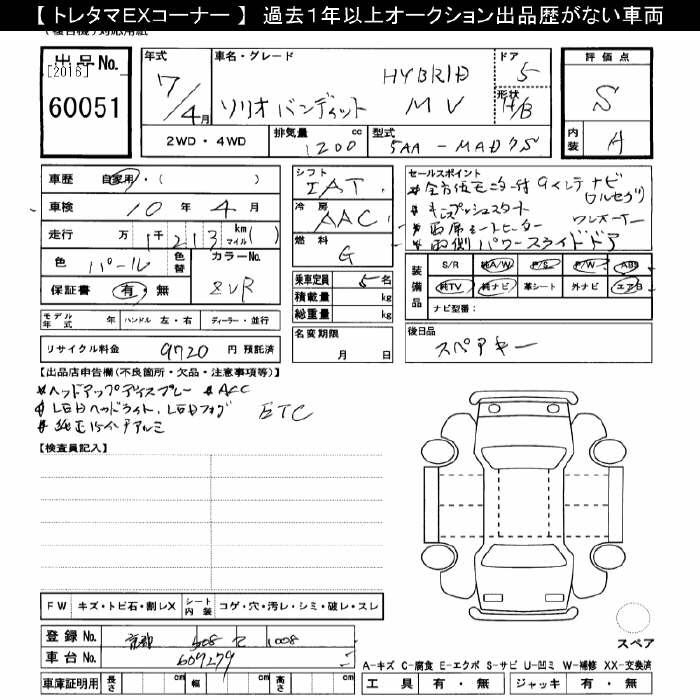 【 トレタマEXコーナー 】 過去1年以上オークション出品歴がない車両
出品No.
[2016]
60051
年式
7/4月
車名・グレード
HYBRID
ソリオ バンディット MV
ドア
5
形状
H/B
評価点
S
内装
A
2WD・4WD
排気量
1200 cc
型式
5AA - MAD7S
車歴
自家用・( )
車検
10年4月
走行
万 1千213 km マイル ( )
色
パール
色替
カラーNo.
ZVR
保証書
有・無
シフト
IAT
冷房
AAC
燃料
G
乗車定員
5名
積載量
kg
総重量
kg
セールスポイント
*全方位モニター付9インチナビ
フルセグ
*キーレスプッシュスタート
*両席シートヒーター
*両側パワースライドドア
装備品
S/R
純A/W
P/S
P/W
ABS
純TV
純ナビ
革シート
外ナビ
エアB
ナビ型番:
モデル年式 年
ハンドル 左・右
ディーラー・並行
リサイクル料金
9720 円 預託済
名変期限
月 日
後日品
スペアキー
【出品店申告欄(不良箇所・欠品・注意事項等)】
*ヘッドアップディスプレー *ACC
*LEDヘッドライト、LEDフォグ ETC
*純正15インチアルミ
【検査員記入】
FW キズ・トビ石・割レX
シート内装 コゲ・穴・汚レ・シミ・破レ・スレ
登録No.
京都 508 て 1008
車台No.
607279
車庫証明用
長さ cm
幅 cm
高さ cm
スペア
A-キズ C-腐食 E-エクボ S-サビ U-凹ミ W-補修 XX-交換済
工具 有・無
ジャッキ 有・無